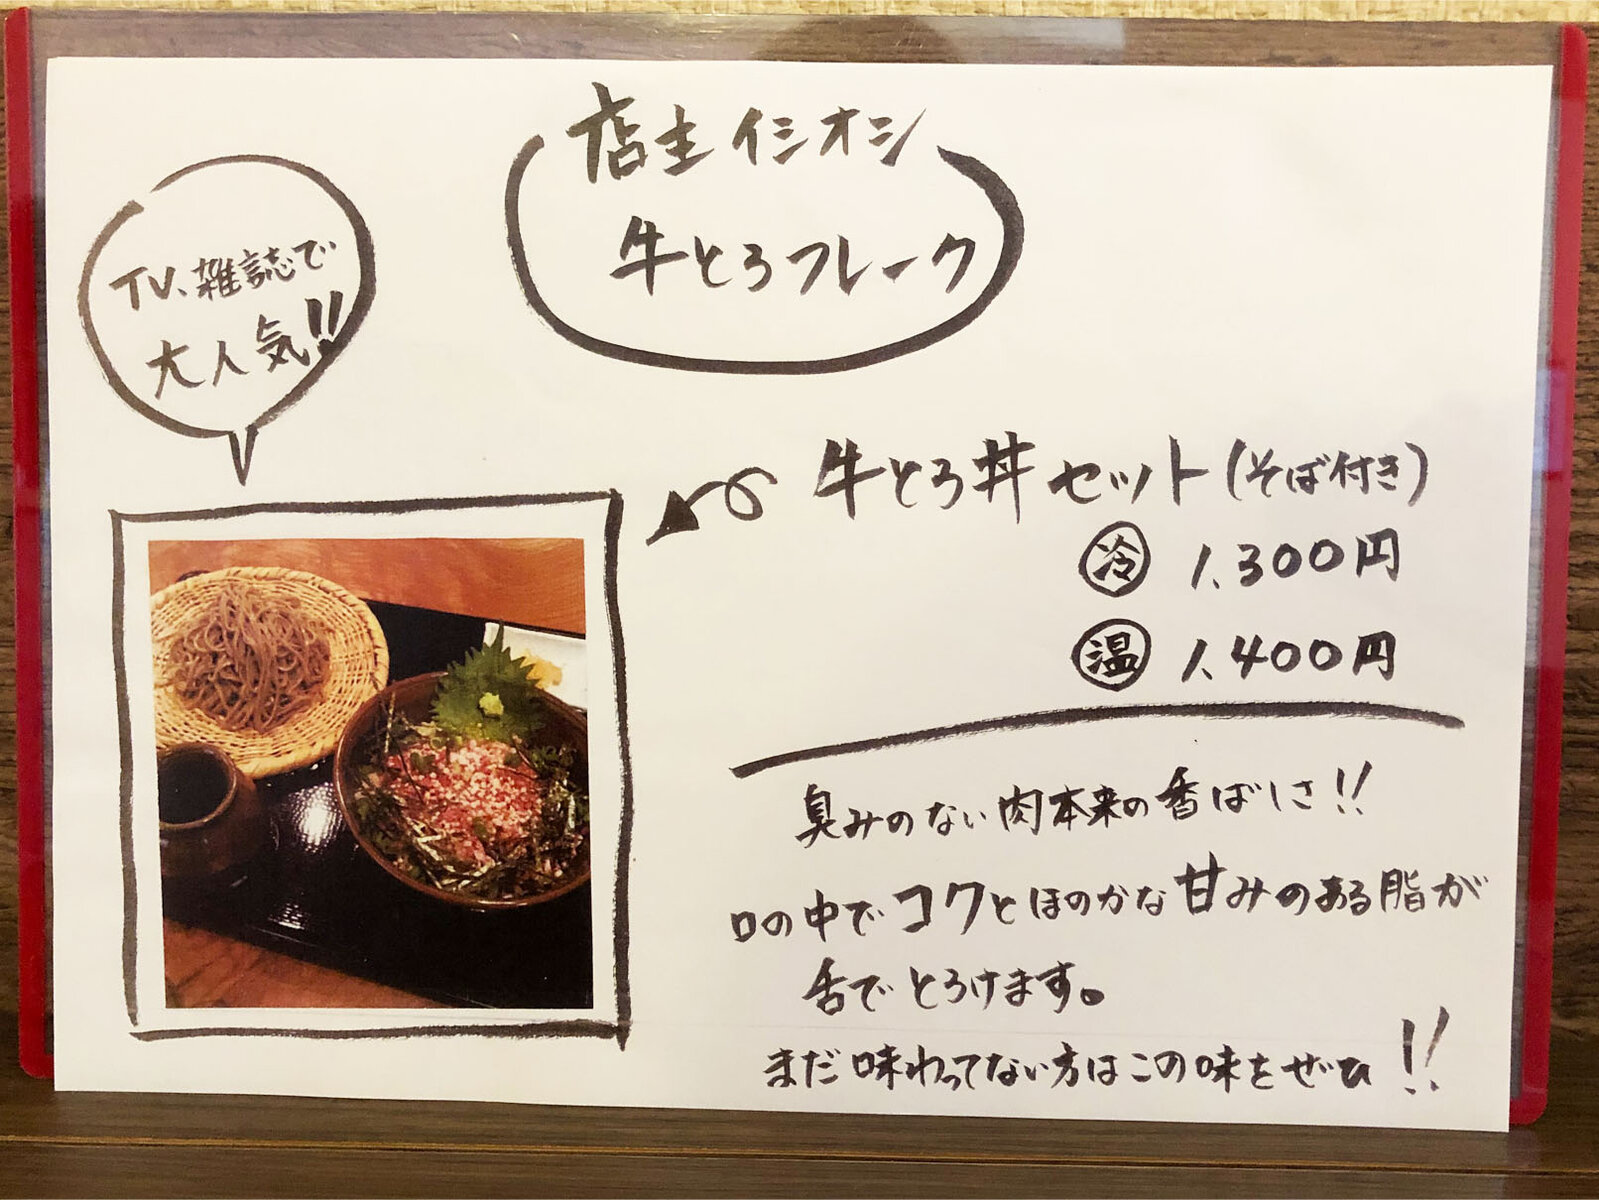 店主イシオシ
牛とろフレーク
TV、雑誌で
大人気!!
牛とろ丼セット(そば付き)
冷 1,300円
温 1,400円
臭みのない肉本来の香ばしさ!!
口の中でコクとほのかな甘みのある脂が
舌でとろけます。
まだ味わってない方はこの味をぜひ!!